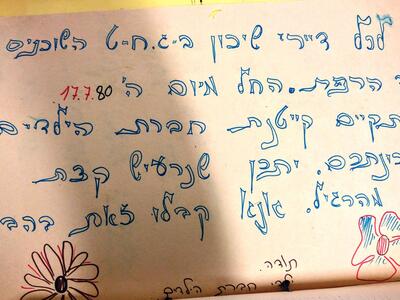 לכל דיירי שיכון השוכנים
הרפת. החל מיום ה' 17.7.80
תקיים קייטנת חברת הילדים
יתכן שנרעיש קצת
מהרגיל. אנא קבלו זאת בהב
תודה.
ילדי חברת הילדים